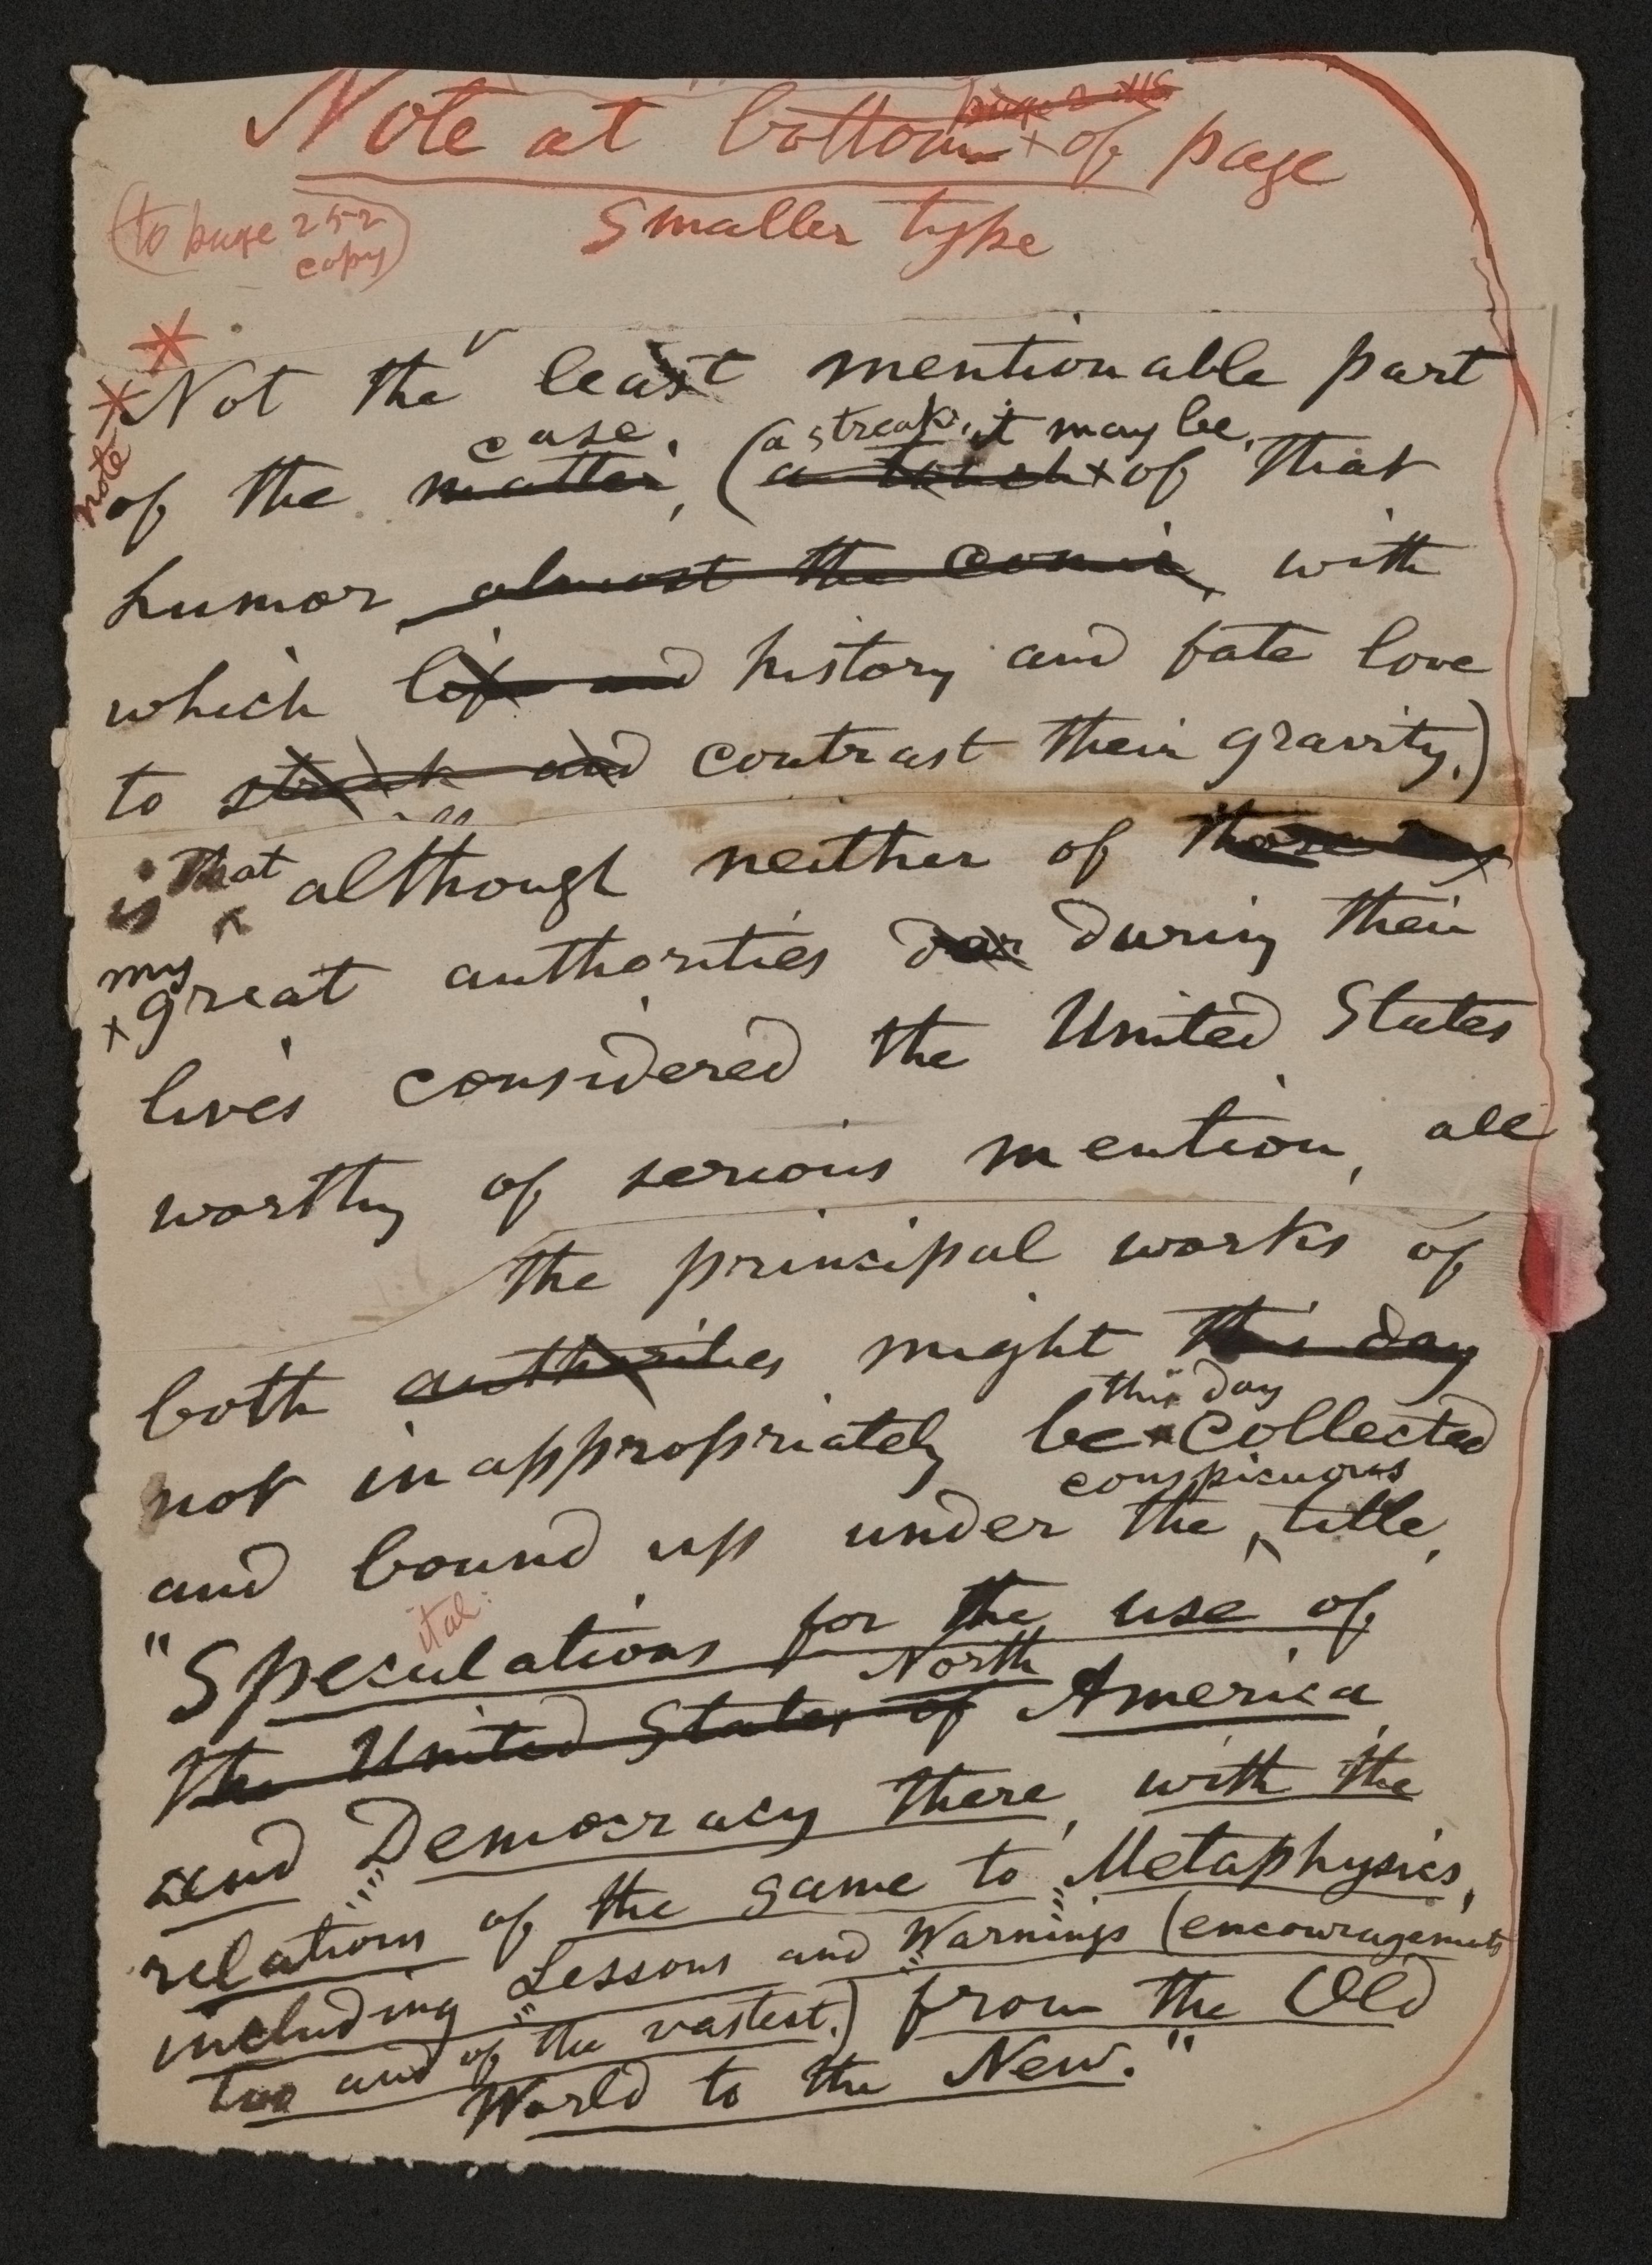 Note at bottom + of page
Smaller type
(to page 252
copy)
*
* Not the least mentionable part
note
case. (a streak, it may be,
of the matter, a touch + of that
humor almost the comic, with
which life and history and fate love
to streak and contrast their gravity,)
is that although neither of those
my
+ great authorities dur during their
lives considered the United States
worthy of serious mention, all
the principal works of
both authorities might this day
this day
not inappropriately be collected
conspicuous
and bound up under the ^ title,
ital:
"Speculations for the use of
North
the United States of America,
and Democracy there, with the
relations of the same to Metaphysics,
including Lessons and Warnings (encouragements
too and of the vastest,) from the Old
World to the New."